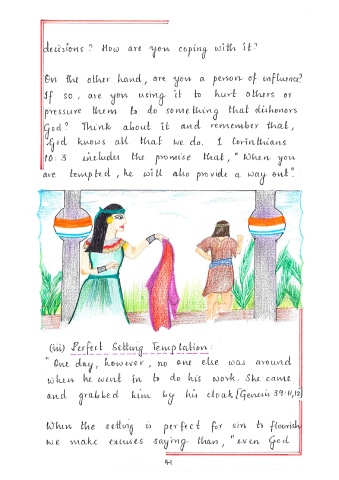 decisions? How are you coping with it?
On the other hand, are you a person of influence?
If so, are you using it to hurt others or
pressure them to do something that dishonors
God? Think about it and remember that,
"God knows all that we do. 1 Corinthians
10:3 includes the promise that, "When you
are tempted, he will also provide a way out".
(iii) Perfect Setting Temptation:
"One day, however, no one else was around
when he went in to do his work. She came
and grabbed him by his cloak [Genesis 39:11,12]
When the setting is perfect for sin to flourish
we make excuses saying than, "even God